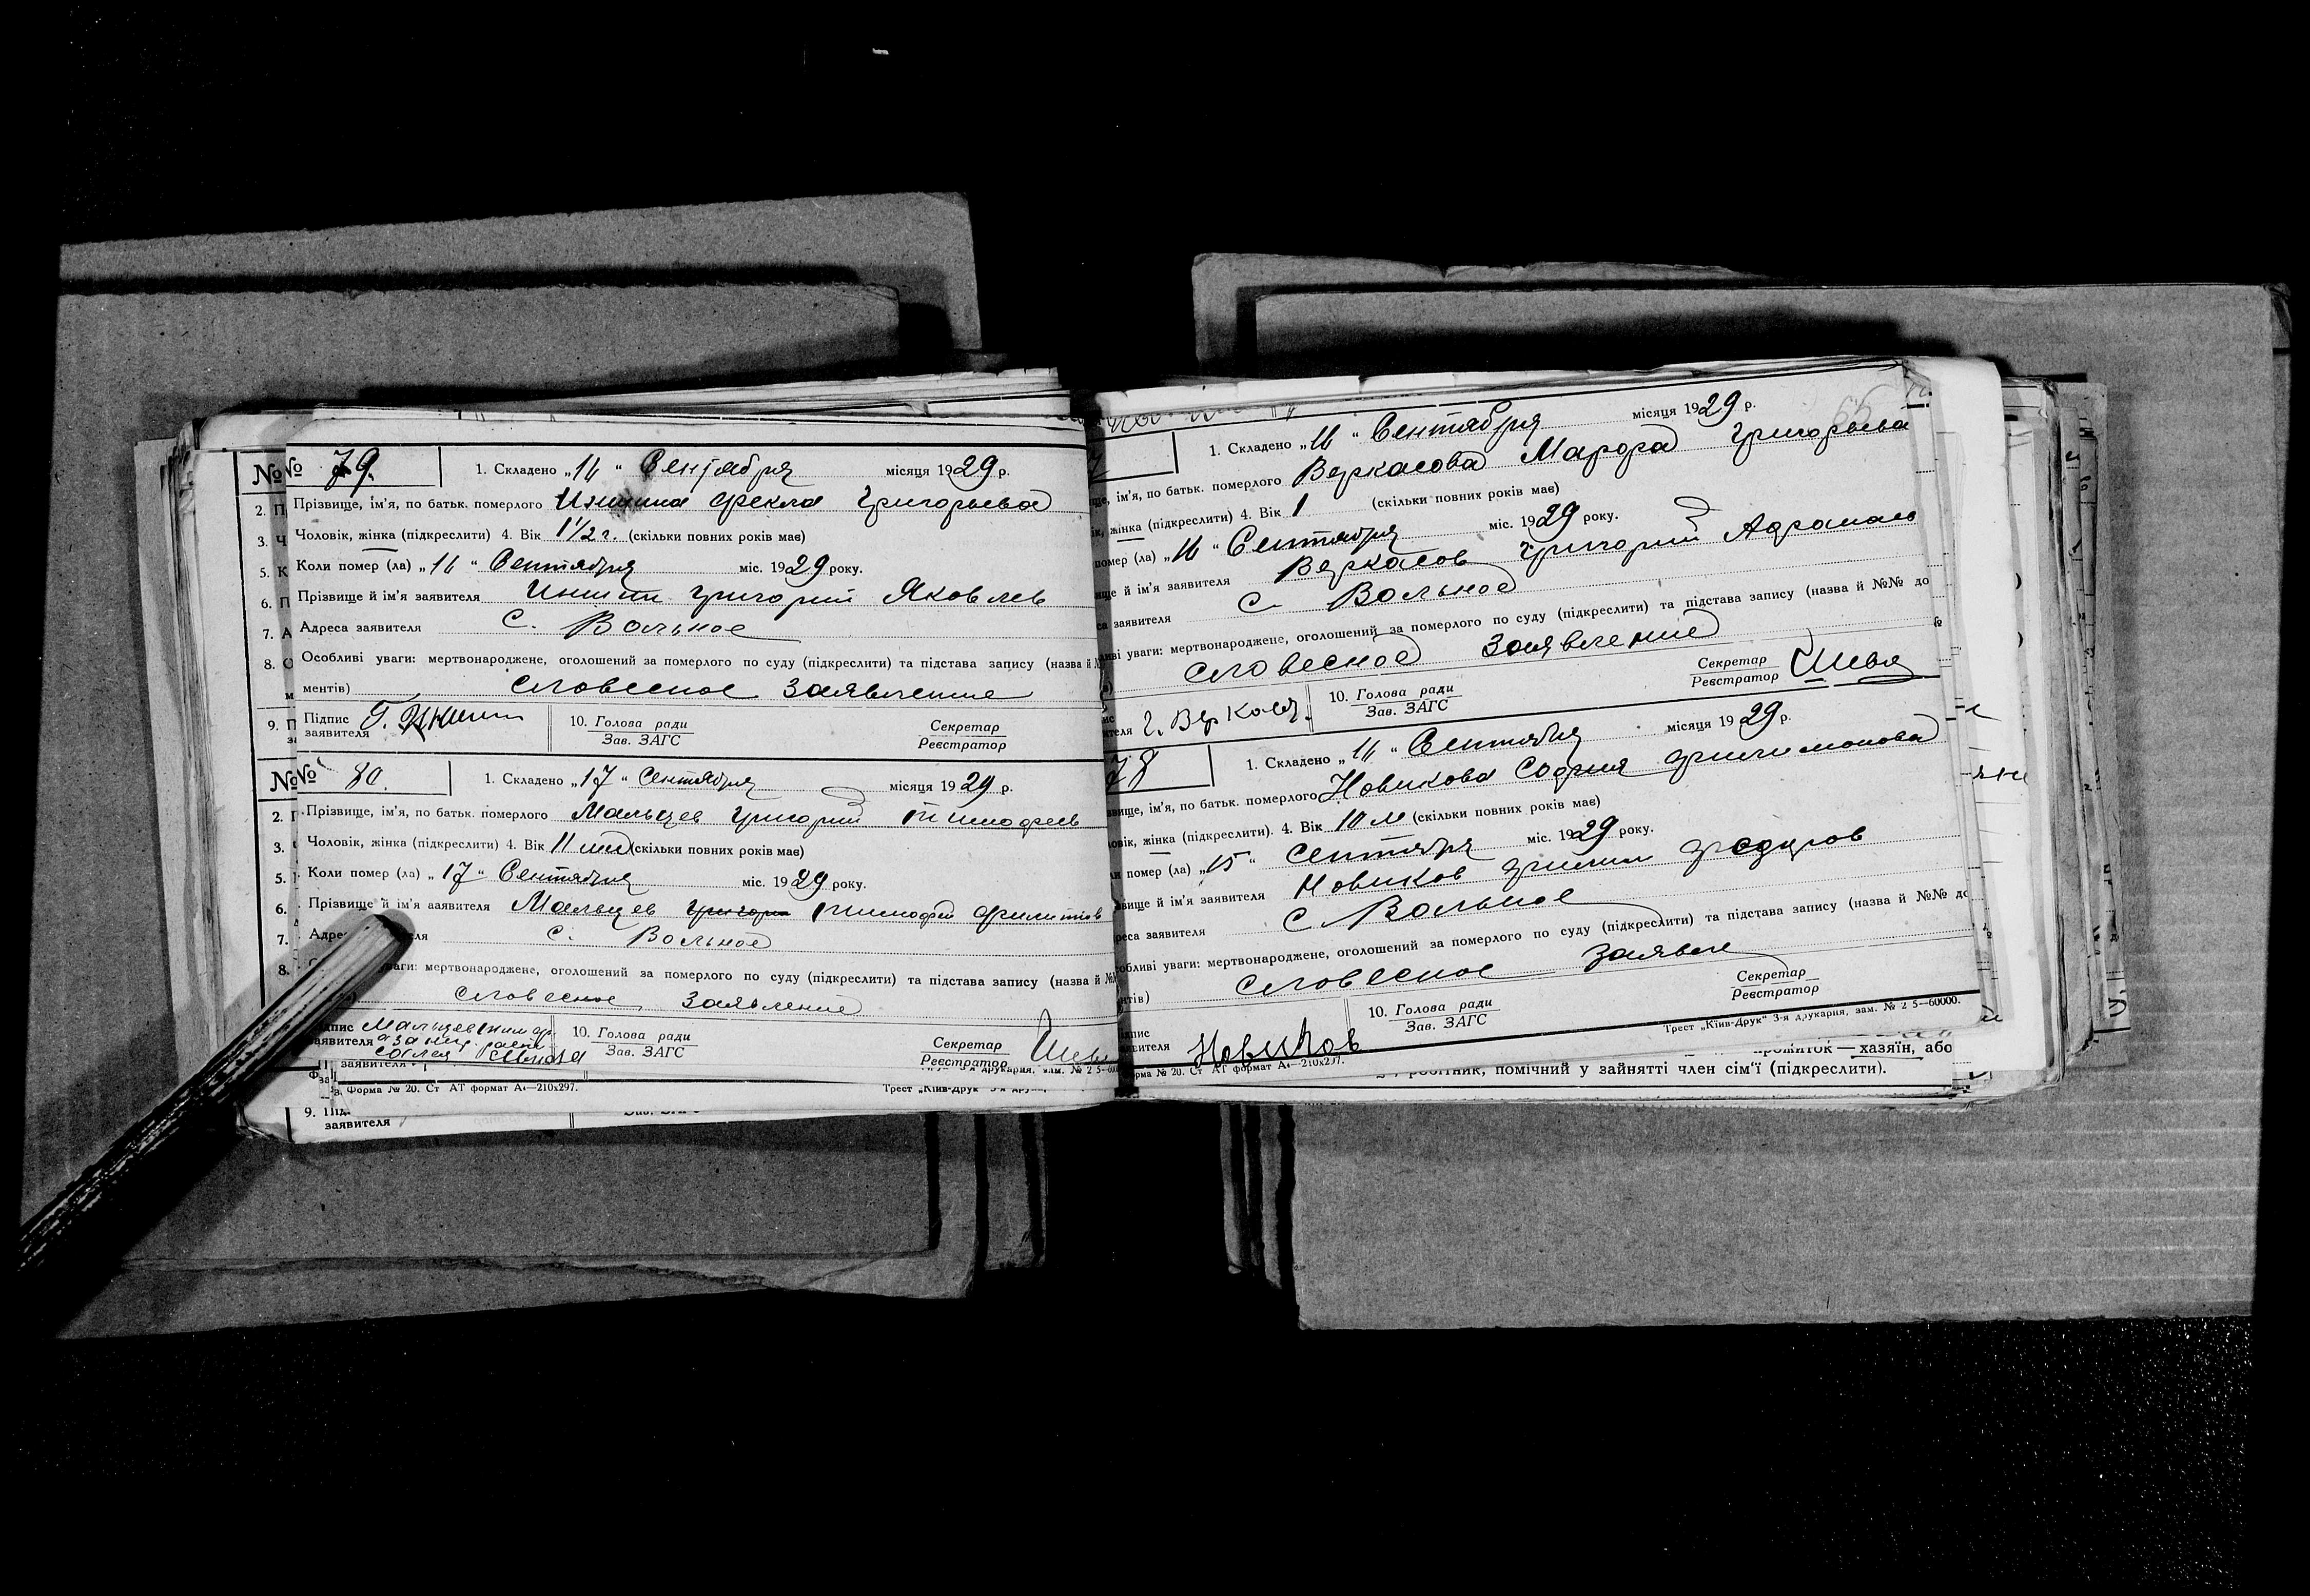 № 79. 1. Складено „16“ Сентября місяця 1929 р.
Прізвище, ім'я, по батьк. померлого Фекла Григорьева
Чоловік, жінка (підкреслити) 4. Вік 1 1/2 г. (скільки повних років має)
Коли помер (ла) „16“ Сентября міс. 1929 року.
Прізвище й ім'я заявителя Григорий Яковлев
Адреса заявителя С. Вольное
Особливі уваги: мертвонароджене, оголошений за померлого по суду (підкреслити) та підстава запису (назва й
ментів) словесное заявление
Підпис
заявителя
10. Голова ради
Зав. ЗАГС
Секретар
Реєстратор
№ 80. 1. Складено „17“ Сентября місяця 1929 р.
Прізвище, ім'я, по батьк. померлого Мальцев Григорий Тимофеев
Чоловік, жінка (підкреслити) 4. Вік 11 (скільки повних років має)
Коли помер (ла) „17“ Сентября міс. 1929 року.
Прізвище й ім'я заявителя Мальцев Тимофей Филиппов
С. Вольное
уваги: мертвонароджене, оголошений за померлого по суду (підкреслити) та підстава запису (назва й
словесное заявление
заявителя
10. Голова ради
Зав. ЗАГС
Секретар
Реєстратор
заявителя
Форма № 20. Ст АТ формат А4—210х297. Трест „Київ-Друк“
9.
заявителя
1. Складено „16“ Сентября місяця 1929 р.
ім'я, по батьк. померлого Веркасова Марфа Григорьева
жінка (підкреслити) 4. Вік 1 (скільки повних років має)
помер (ла) „16“ Сентября міс. 1929 року.
й ім'я заявителя Веркасов Григорий
заявителя С. Вольное
уваги: мертвонароджене, оголошений за померлого по суду (підкреслити) та підстава запису (назва й №№ до
словесное заявление
10. Голова ради
Зав. ЗАГС
Секретар
Реєстратор
78 1. Складено „16“ Сентября місяця 1929 р.
ім'я, по батьк. померлого Новикова София Филимонова
жінка (підкреслити). 4. Вік 10 м (скільки повних років має)
помер (ла) „15“ Сентября міс. 1929 року.
й ім'я заявителя Новиков Филим Федоров
заявителя С. Вольное
уваги: мертвонароджене, оголошений за померлого по суду (підкреслити) та підстава запису (назва й №№ до
словесное заявле
Новиков
10. Голова ради
Зав. ЗАГС
Секретар
Реєстратор
Трест „Київ-Друк“ 3-я друкарня, зам. № 2 5—60000.
№ 20. Ст АТ формат А4—210х297.
хазяїн, або
робітник, помічний у зайнятті член сім'ї (підкреслити).